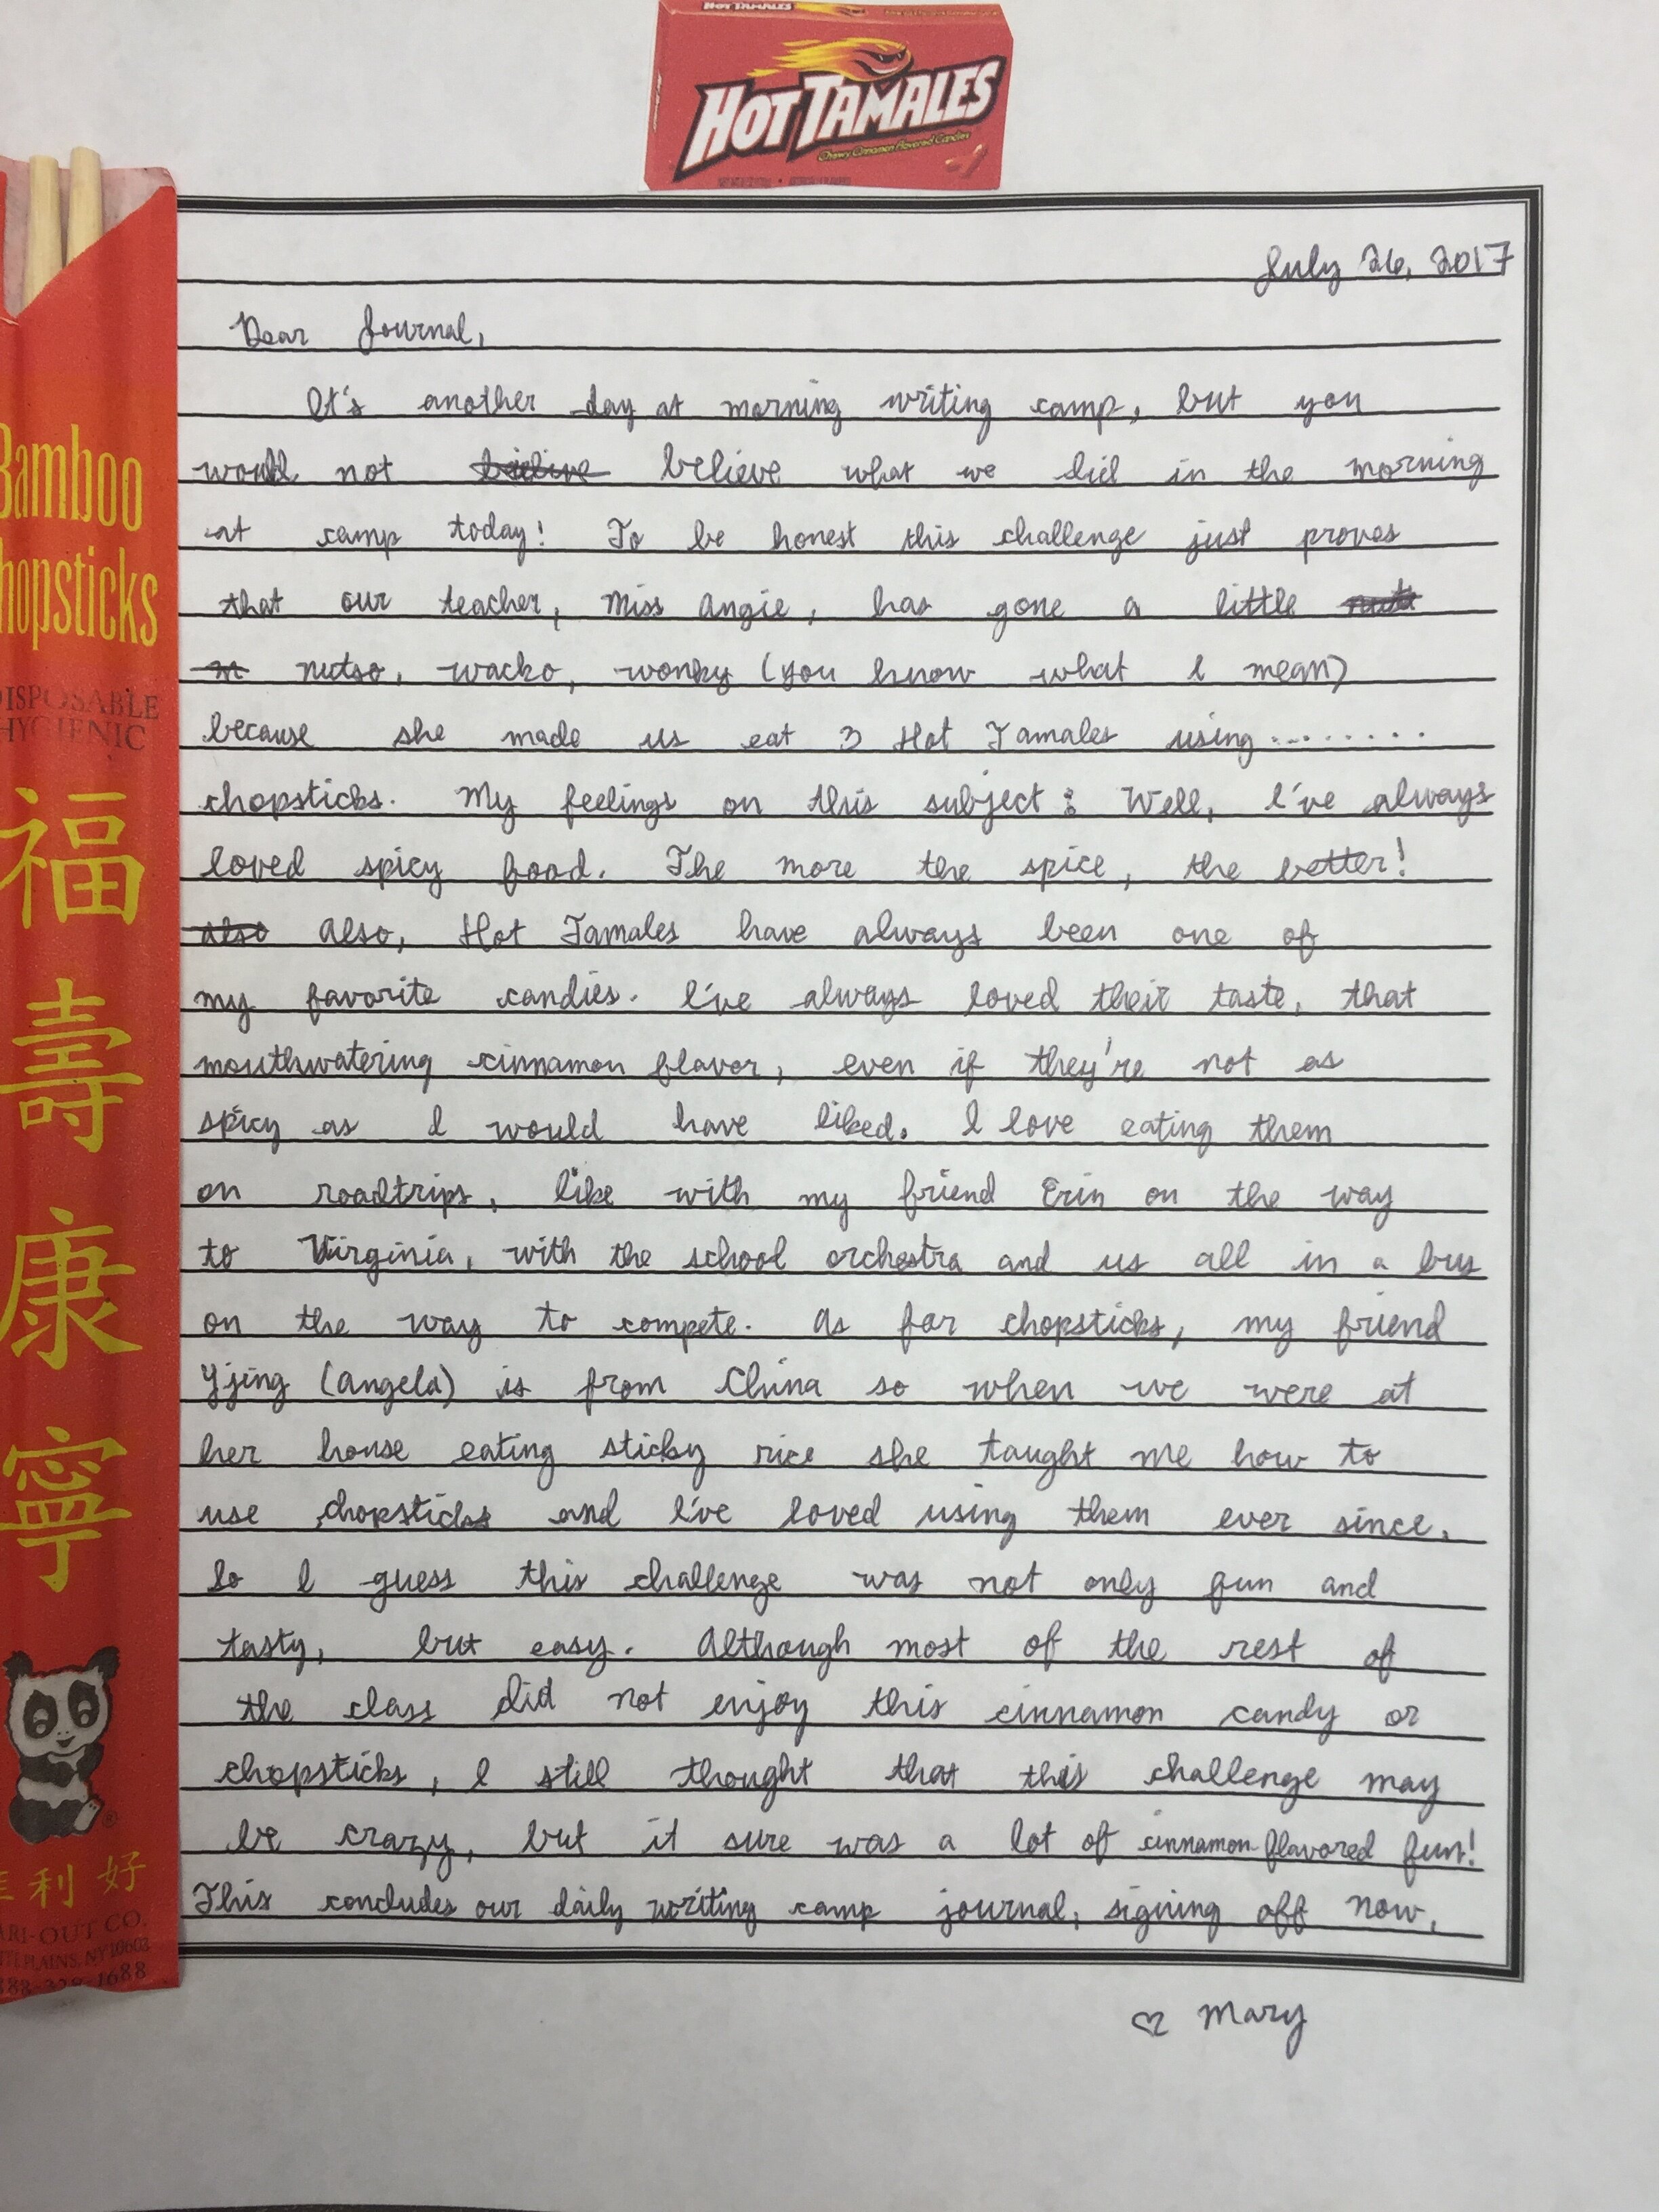 HOT TAMALES
HOT TAMALES
Chewy Cinnamon Flavored Candies
Bamboo
hopsticks
DISPOSABLE
HYGIENIC
福
壽
康
寧
利好
ARI-OUT CO.
PLAINS, NY 10603
888-328-1688
July 26, 2017
Dear Journal,
It's another day at morning writing camp, but you
would not believe what we did in the morning
at camp today! To be honest this challenge just proves
that our teacher, Miss Angie, has gone a little nuts
nutso, wacko, wonky (you know what I mean)
because she made us eat 3 Hot Tamales using........
chopsticks. My feelings on this subject: Well, I've always
loved spicy food. The more the spice, the better!
also Also, Hot Tamales have always been one of
my favorite candies. I've always loved their taste, that
mouthwatering cinnamon flavor, even if they're not as
spicy as I would have liked. I love eating them
on roadtrips, like with my friend Erin on the way
to Virginia, with the school orchestra and us all in a bus
on the way to compete. As for chopsticks, my friend
Yjing (Angela) is from China so when we were at
her house eating sticky rice she taught me how to
use chopsticks and I've loved using them ever since.
So I guess this challenge was not only fun and
tasty, but easy. Although most of the rest of
the class did not enjoy this cinnamon candy or
chopsticks, I still thought that this challenge may
be crazy, but it sure was a lot of cinnamon-flavored fun!
This concludes our daily writing camp journal, signing off now,
♡ Mary